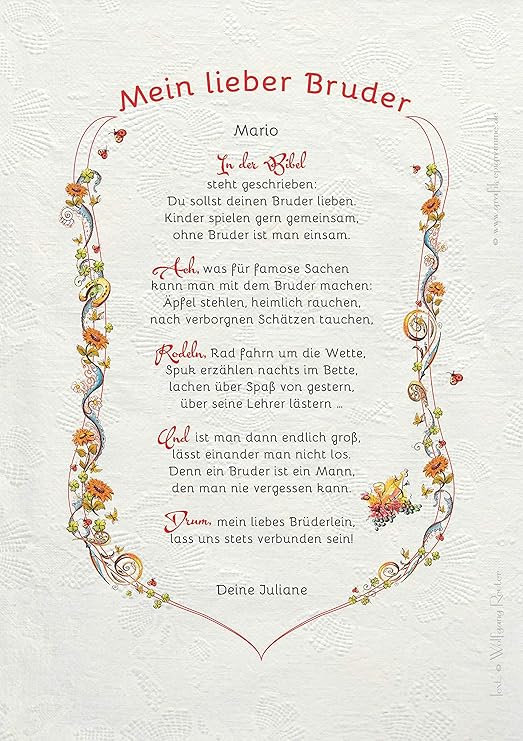 Mein lieber Bruder
Mario
In der Bibel
steht geschrieben:
Du sollst deinen Bruder lieben.
Kinder spielen gern gemeinsam,
ohne Bruder ist man einsam.
Ach, was für famose Sachen
kann man mit dem Bruder machen:
Äpfel stehlen, heimlich rauchen,
nach verborgnen Schätzen tauchen,
Rodeln, Rad fahrn um die Wette,
Spuk erzählen nachts im Bette,
lachen über Spaß von gestern,
über seine Lehrer lästern ...
Und ist man dann endlich groß,
lässt einander man nicht los.
Denn ein Bruder ist ein Mann,
den man nie vergessen kann.
Drum, mein liebes Brüderlein,
lass uns stets verbunden sein!
Deine Juliane
Text: © Wolfgang